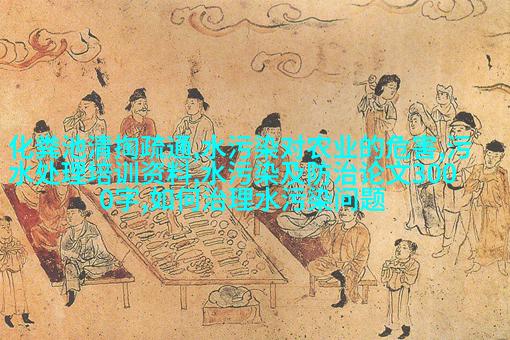 化粪池清掏疏通,水污染对农业的危害,污
水处理培训资料,水污染及防治论文300
0字,如何治理水污染问题